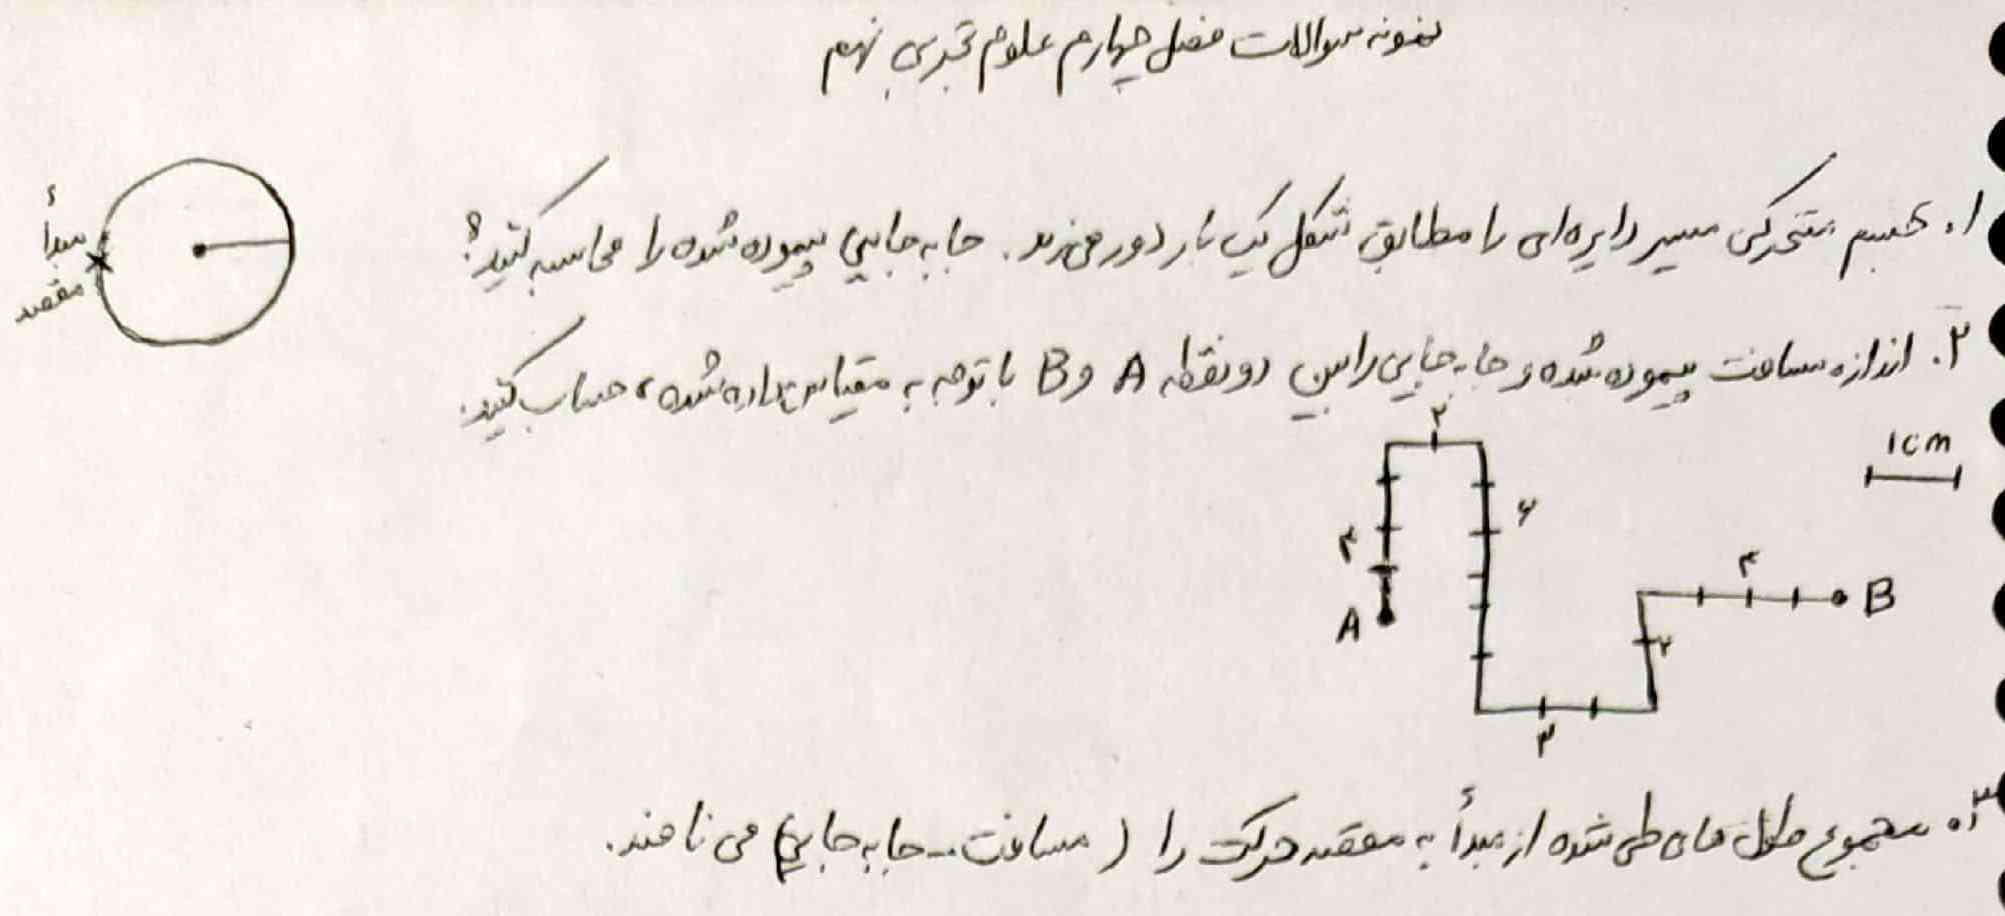 نمونه سوالات فصل چهارم علوم تجربی نهم
۱. جسم متحرکی مسیر دایره‌ای را مطابق شکل یک بار دور می‌زند. جابه‌جایی پیموده شده را محاسبه کنید؟
مبدأ
مقصد
۲. اندازه مسافت پیموده شده و جابه‌جایی را بین دو نقطه A و B با توجه به مقیاس داده شده، حساب کنید.
1cm
۲
۴
۶
۴
A
B
۲
۳
۳. مجموع طول های طی شده از مبدأ به مقصد حرکت را (مسافت - جابه‌جایی) می نامند.